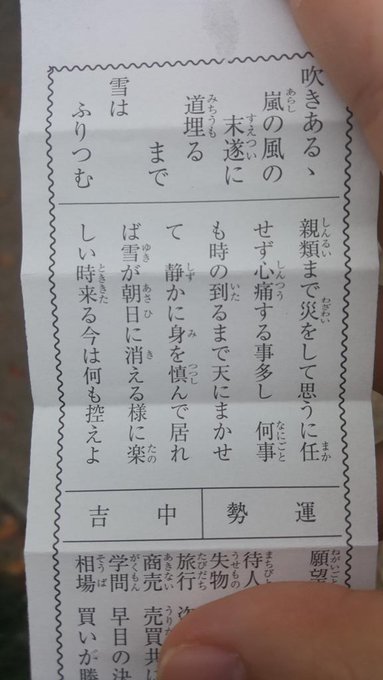 吹きある、
嵐の風の
末遂に
道埋る
まで
雪は
ふりつむ
親類まで災をして思うに任
せず心痛する事多し 何事
も時の到るまで天にまかせ
て 静かに身を慎んで居れ
ば雪が朝日に消える様に楽
しい時来る今は何も控えよ
運勢
中吉
願望
待人
失物
旅行
商売 売買共に
学問 早目の決
相場 買いが勝